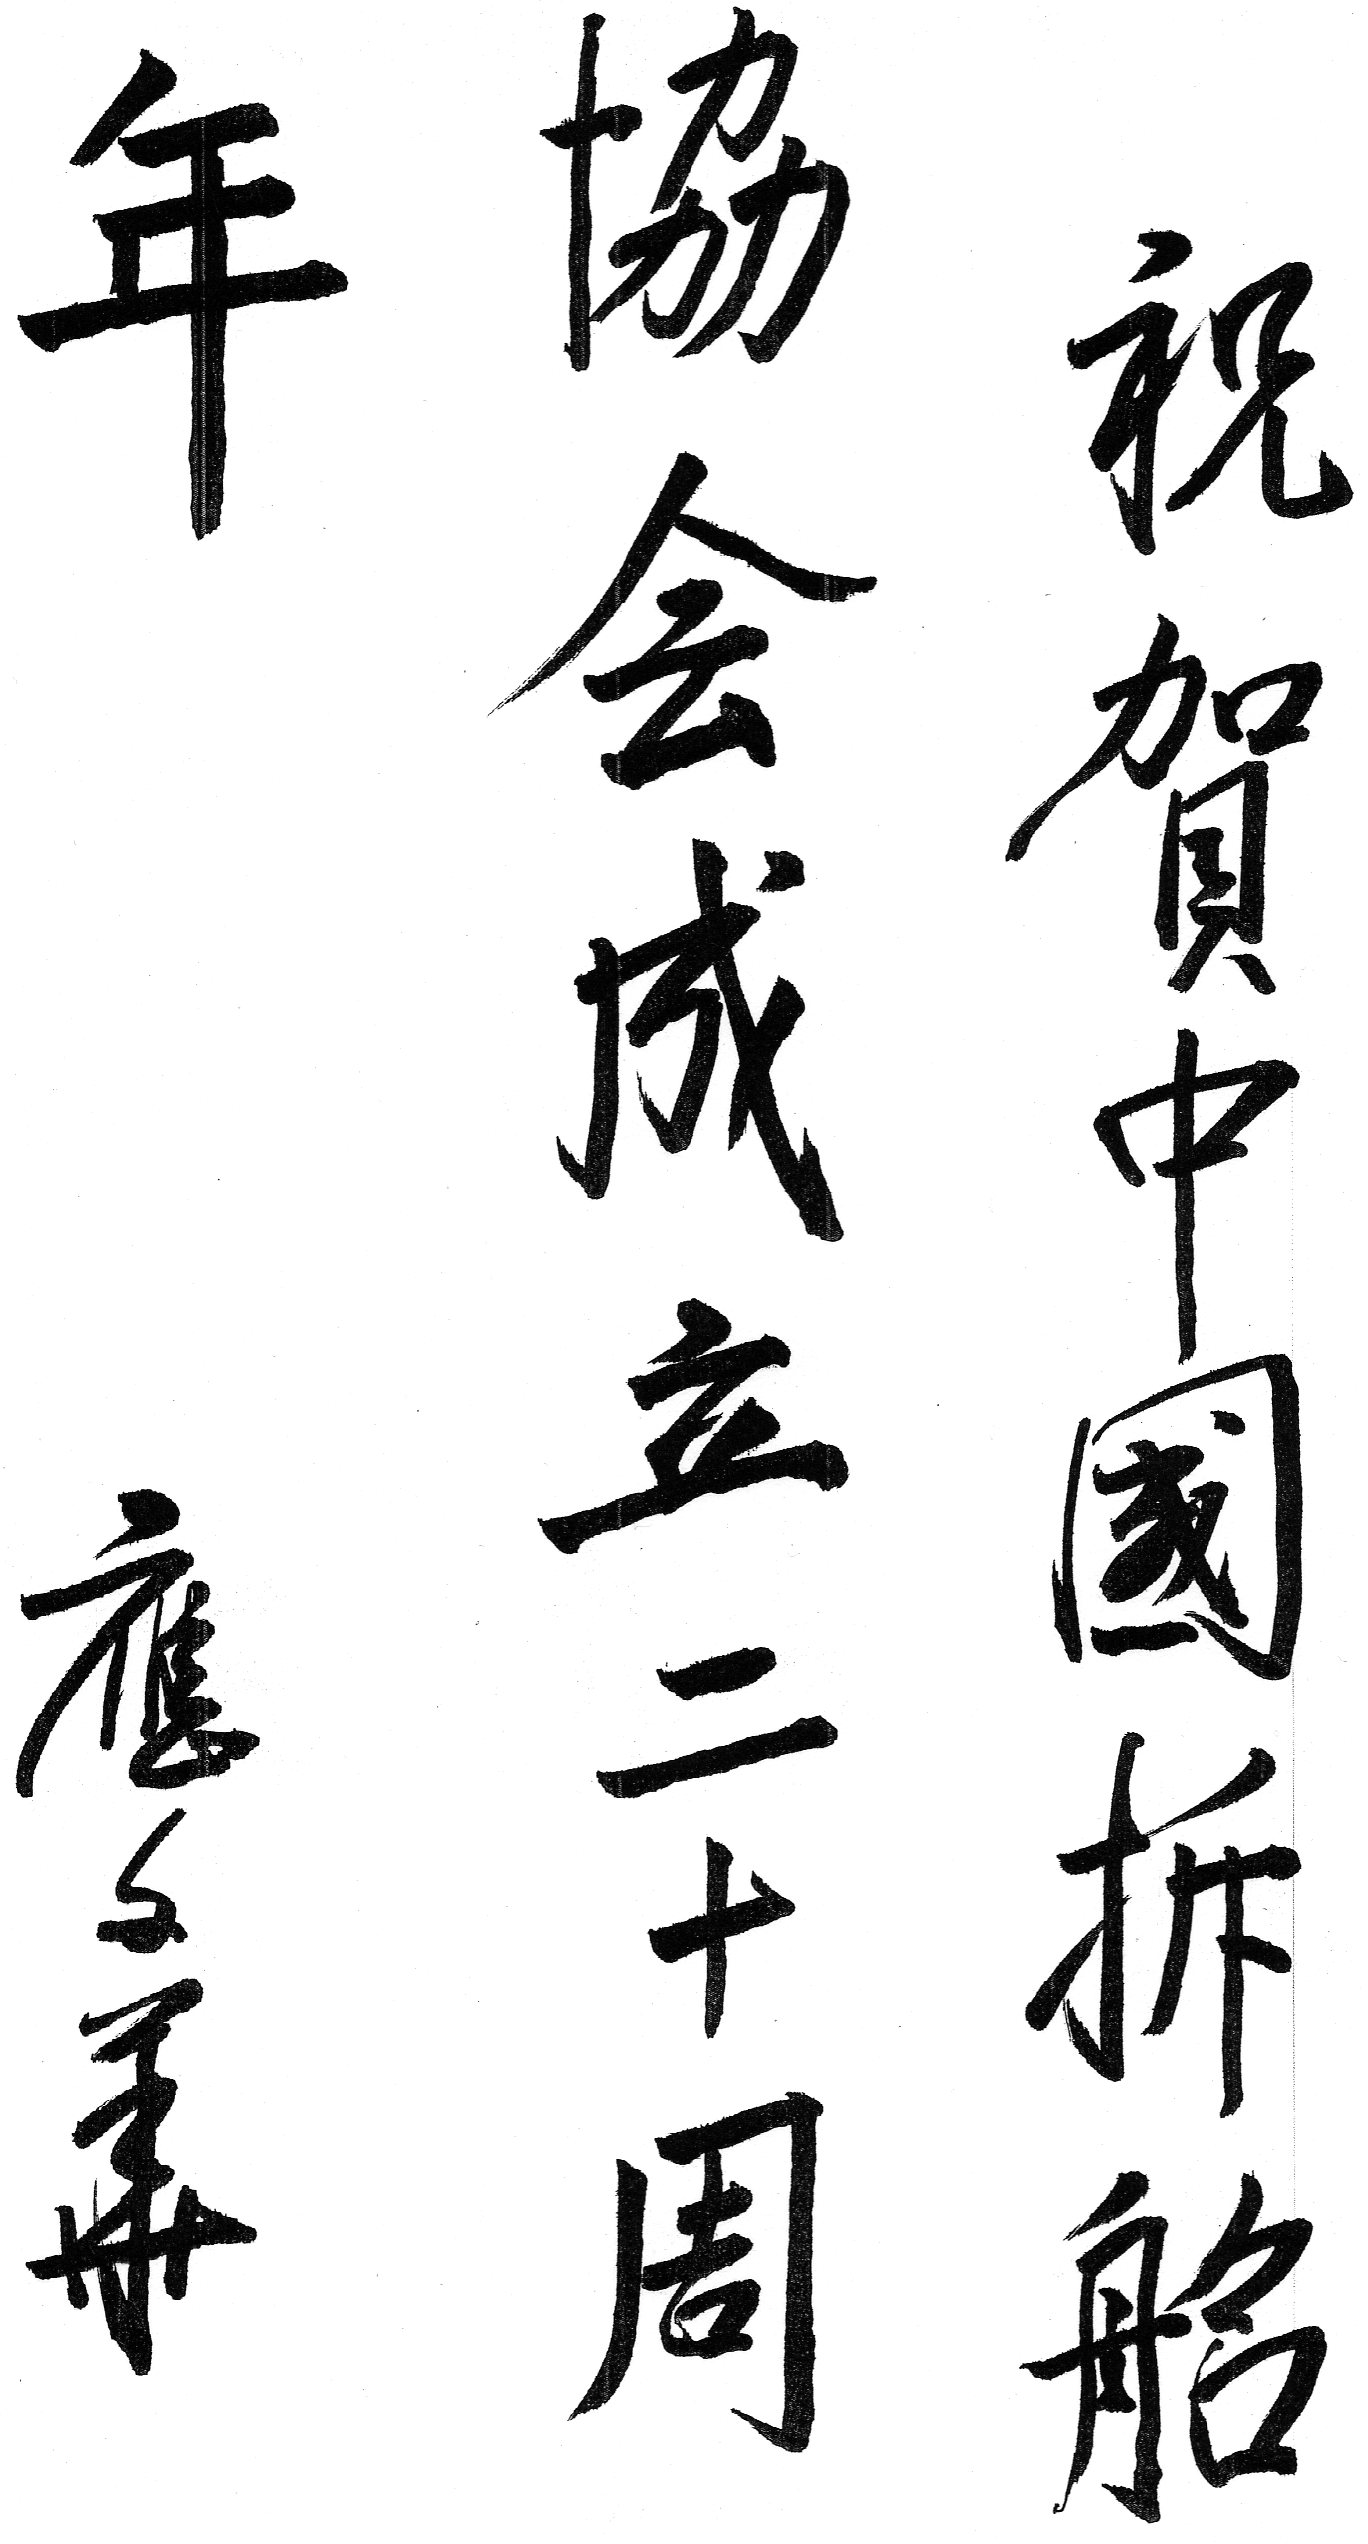 祝賀中國拆船
協会成立二十周
年
應文華